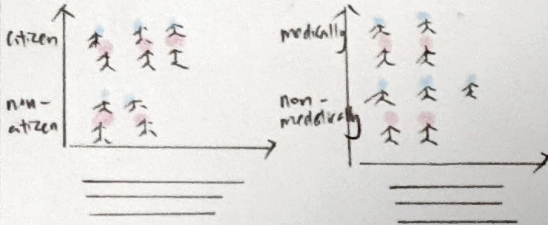 citizen
non-
citizen
medically
non-
medically